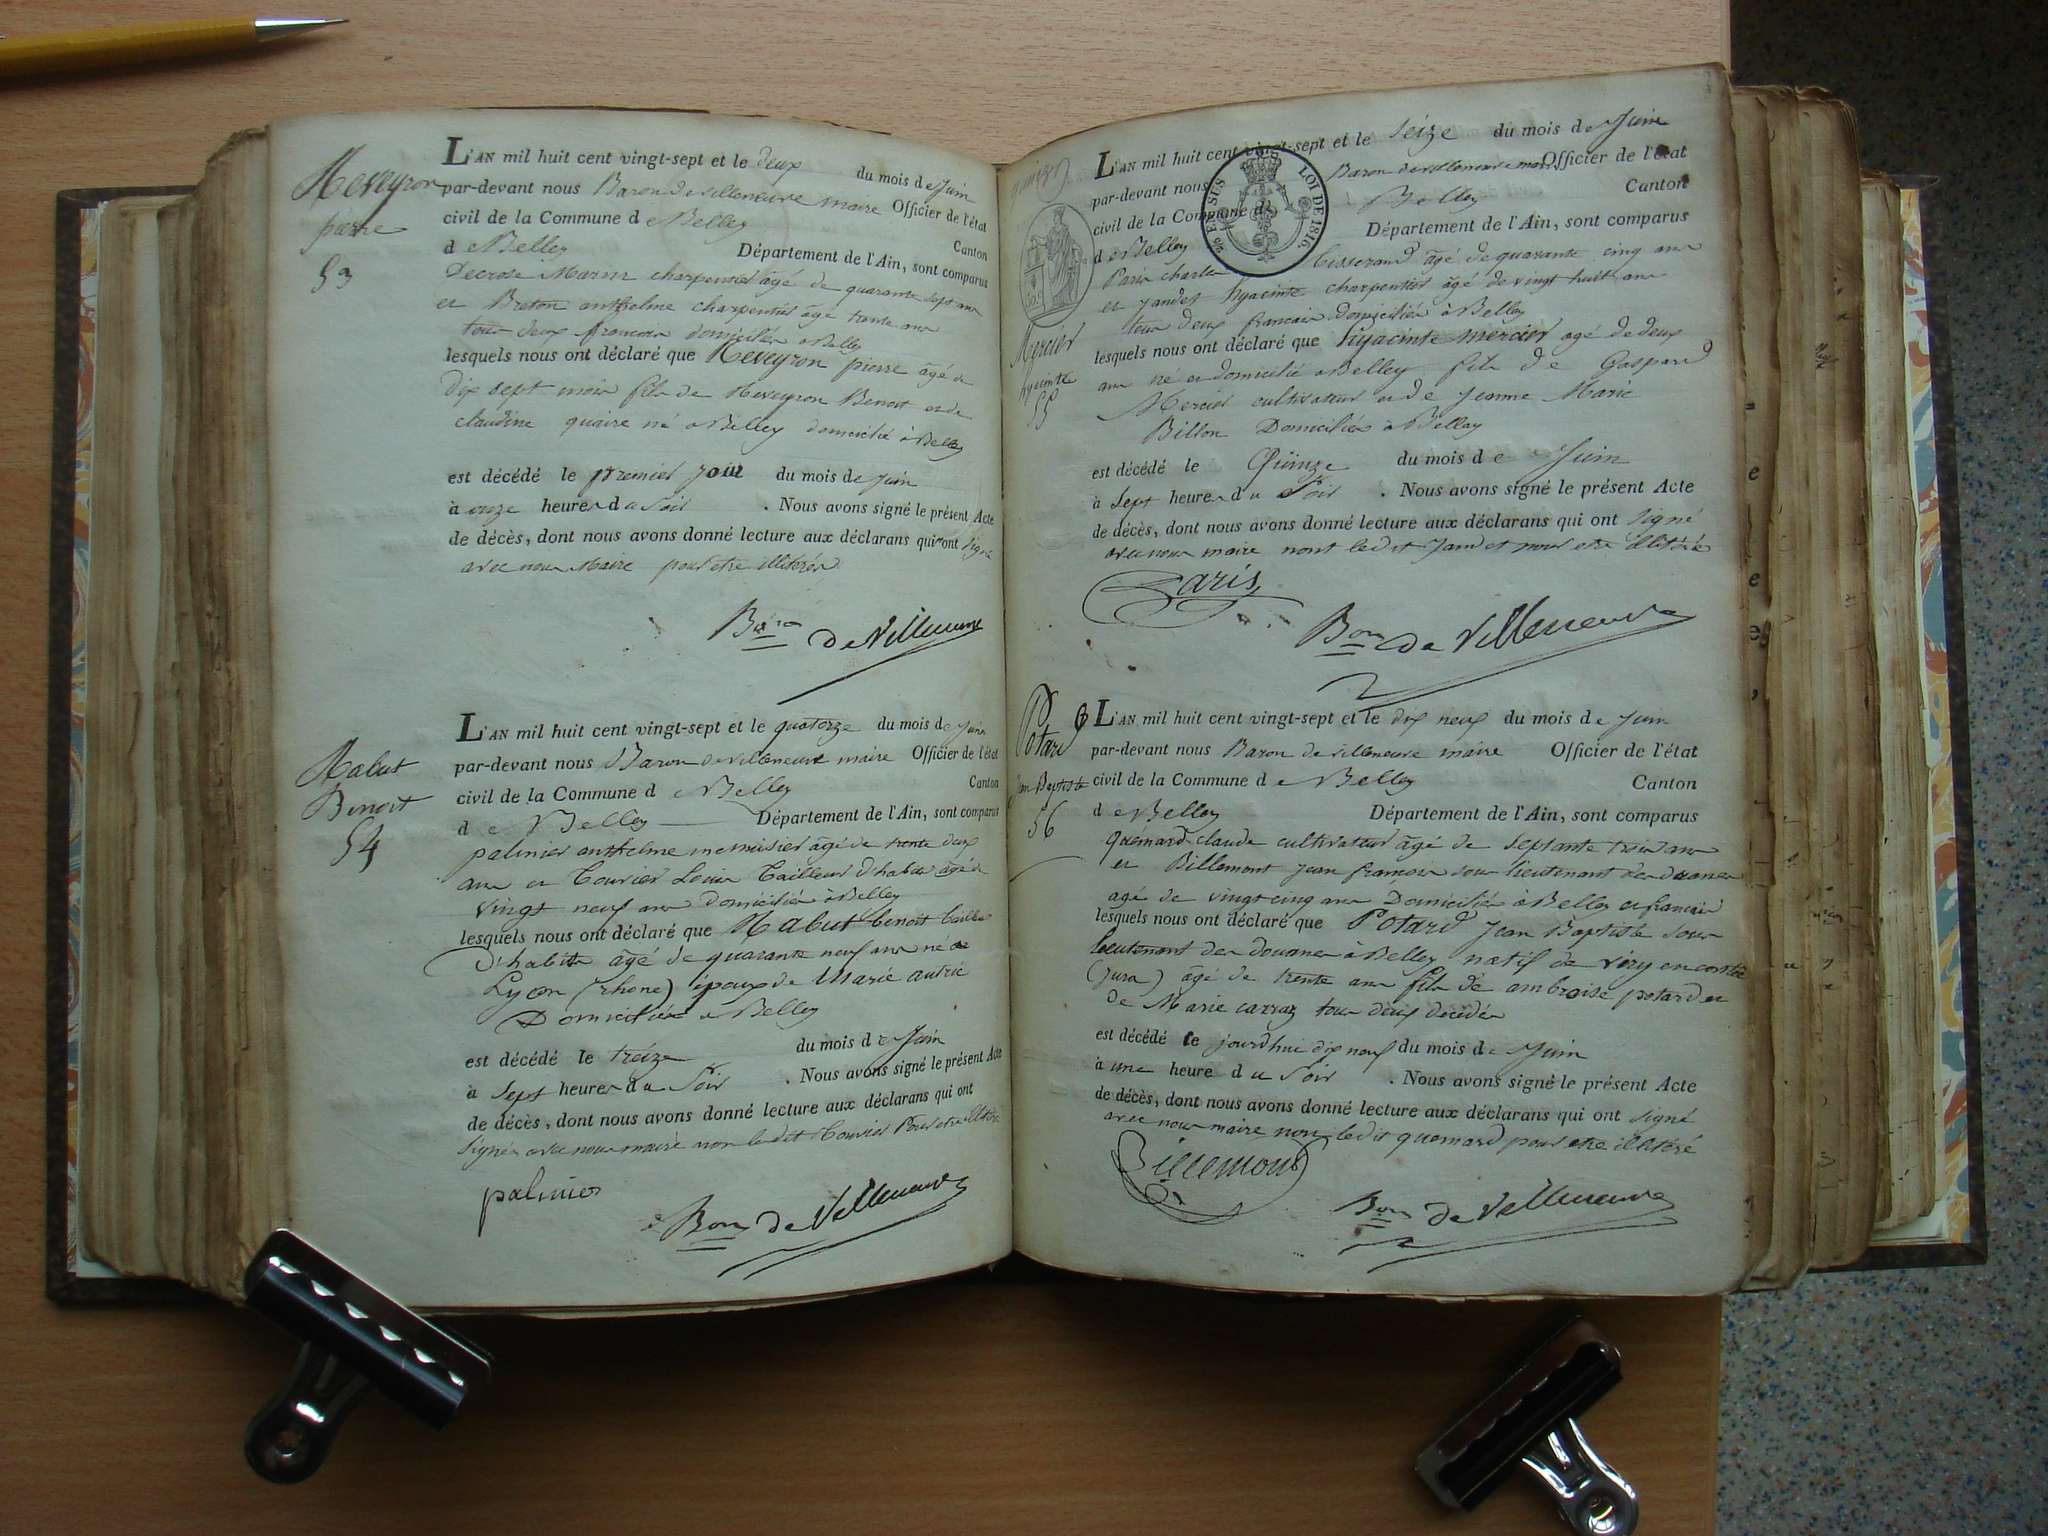 L'AN mil huit cent vingt-sept et le deux du mois de Juin
par-devant nous Baron de villeneuve maire Officier de l'état
civil de la Commune de Belley Canton
de Belley Département de l'Ain, sont comparus
Decrose Marin charpentier âgé de quarante sept ans
et Breton anthelme charpentier âgé trente ans
tous deux francais domiciliés a Belley
lesquels nous ont déclaré que Reveyron pierre âgé de
Dix sept mois fils de Reveyron Benoit et de
claudine né a Belley domicilié a Belley
est décédé le premier jour du mois de Juin
à onze heures du Soir . Nous avons signé le présent Acte
de décès, dont nous avons donné lecture aux déclarans qui ont signé
avec nous Maire pour etre illitérés
Bon de Villeneuve
Reveyron
pierre
53
L'AN mil huit cent vingt-sept et le quatorze du mois de Juin
par-devant nous Baron de villeneuve maire Officier de l'état
civil de la Commune de Belley Canton
de Belley Département de l'Ain, sont comparus
palinier anthelme menusier âgé de trente deux
ans et Louis Tailleur d'habits âgé de
vingt neuf ans domiciliés a Belley
lesquels nous ont déclaré que Rabut benoit taille
D'habits âgé de quarante neuf ans né a
Lyon (rhone) époux de Marie autric
Domicilié a Belley
est décédé le treize du mois de Juin
à Sept heures du Soir . Nous avons signé le présent Acte
de décès, dont nous avons donné lecture aux déclarans qui ont
signé avec nous maire non ledit Pour etre illitéré
palinier
Bon de Villeneuve
Rabut
Benoit
54
L'AN mil huit cent vingt-sept et le seize du mois de Juin
par-devant nous Baron de villeneuve maire Officier de l'état
civil de la Commune de Belley Canton
de Belley Département de l'Ain, sont comparus
Paris charles tisserand âgé de quarante cinq ans
et Jandet hyacinte charpentier âgé de vingt huit ans
tous deux francais domiciliés a Belley
lesquels nous ont déclaré que hyacinte mercier agé de deux
ans né et domicilié a Belley fils de Gaspard
Mercier cultivateur et de Jeanne Marie
Billon Domiciliés a Belley
est décédé le Quinze du mois de Juin
à Sept heures du Soir . Nous avons signé le présent Acte
de décès, dont nous avons donné lecture aux déclarans qui ont signé
avec nous maire nont ledit Jandet pour etre illitéré
Paris
Bon de Villeneuve
95 E. SES LOI DE 1816.
Mercier
hyacinthe
55
L'AN mil huit cent vingt-sept et le dix neuf du mois de Juin
par-devant nous Baron de villeneuve maire Officier de l'état
civil de la Commune de Belley Canton
de Belley Département de l'Ain, sont comparus
quemard claude cultivateur âgé de septante trois ans
et Billemont Jean francois sous lieutenant des douanes
agé de vingt cinq ans Domiciliés a Belley et francais
lesquels nous ont déclaré que Potard Jean Baptiste sous
lieutenant des douanes a Belley natif de
(Jura) âgé de trente ans fils de ambroise potard et
de Marie carraz tous deux decedés
est décédé le jourdhui dix neuf du mois de Juin
à une heure du Soir . Nous avons signé le présent Acte
de décès, dont nous avons donné lecture aux déclarans qui ont signé
avec nous maire non ledit quemard pour etre illitéré
Billemont
Bon de Villeneuve
Potard
Jean Baptiste
56